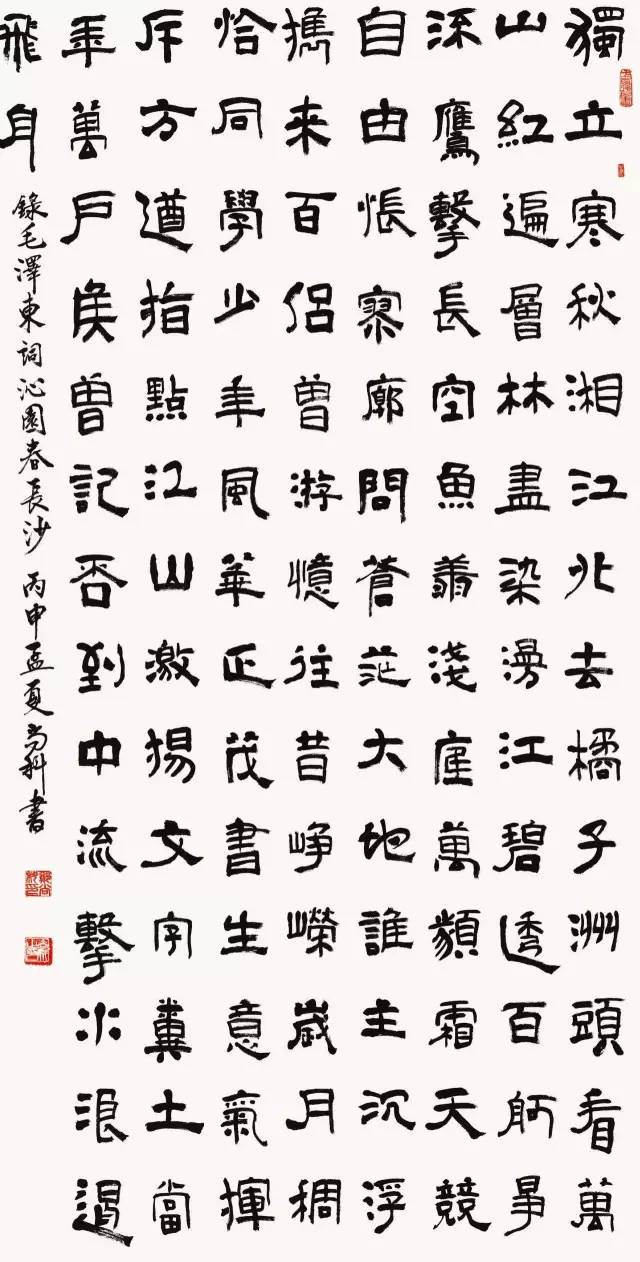 獨立寒秋湘江北去橘子洲頭看萬
山紅遍層林盡染漫江碧透百舸爭
流鷹擊長空魚翔淺底萬類霜天競
自由悵寥廓問蒼茫大地誰主沉浮
攜来百侶曾游憶往昔崢嶸歲月稠
恰同學少年風華正茂書生意氣揮
斥方遒指點江山激揚文字糞土當
年萬戶侯曾記否到中流擊水浪遏
飛舟
錄毛澤東詞沁園春長沙 丙申孟夏尚科書